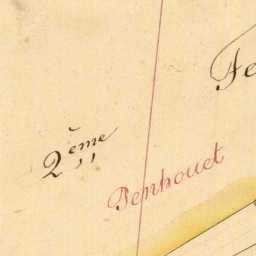 2ème
Penhouet